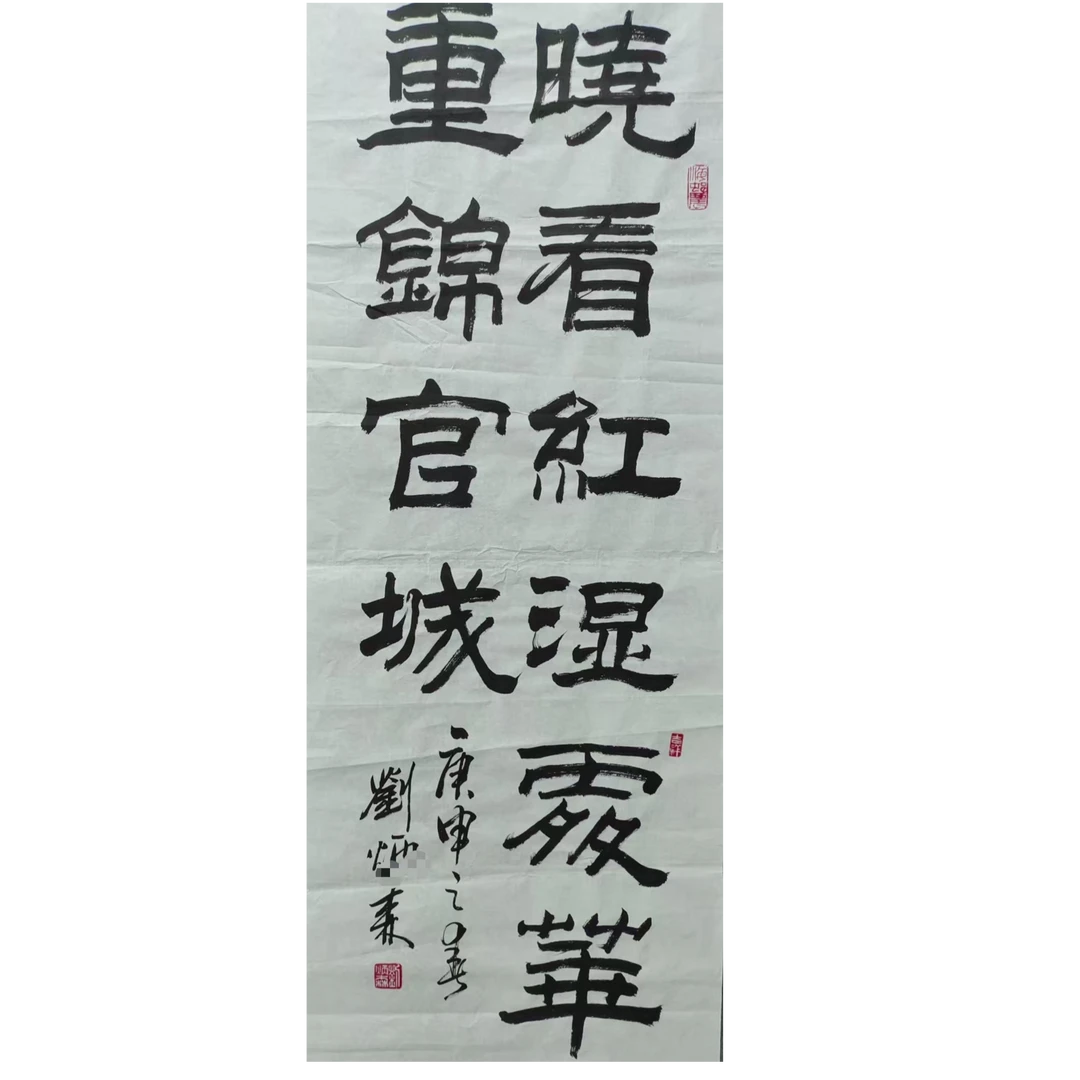 曉看紅湿處華
重錦官城
庚申之春
劉炳森
劉炳森